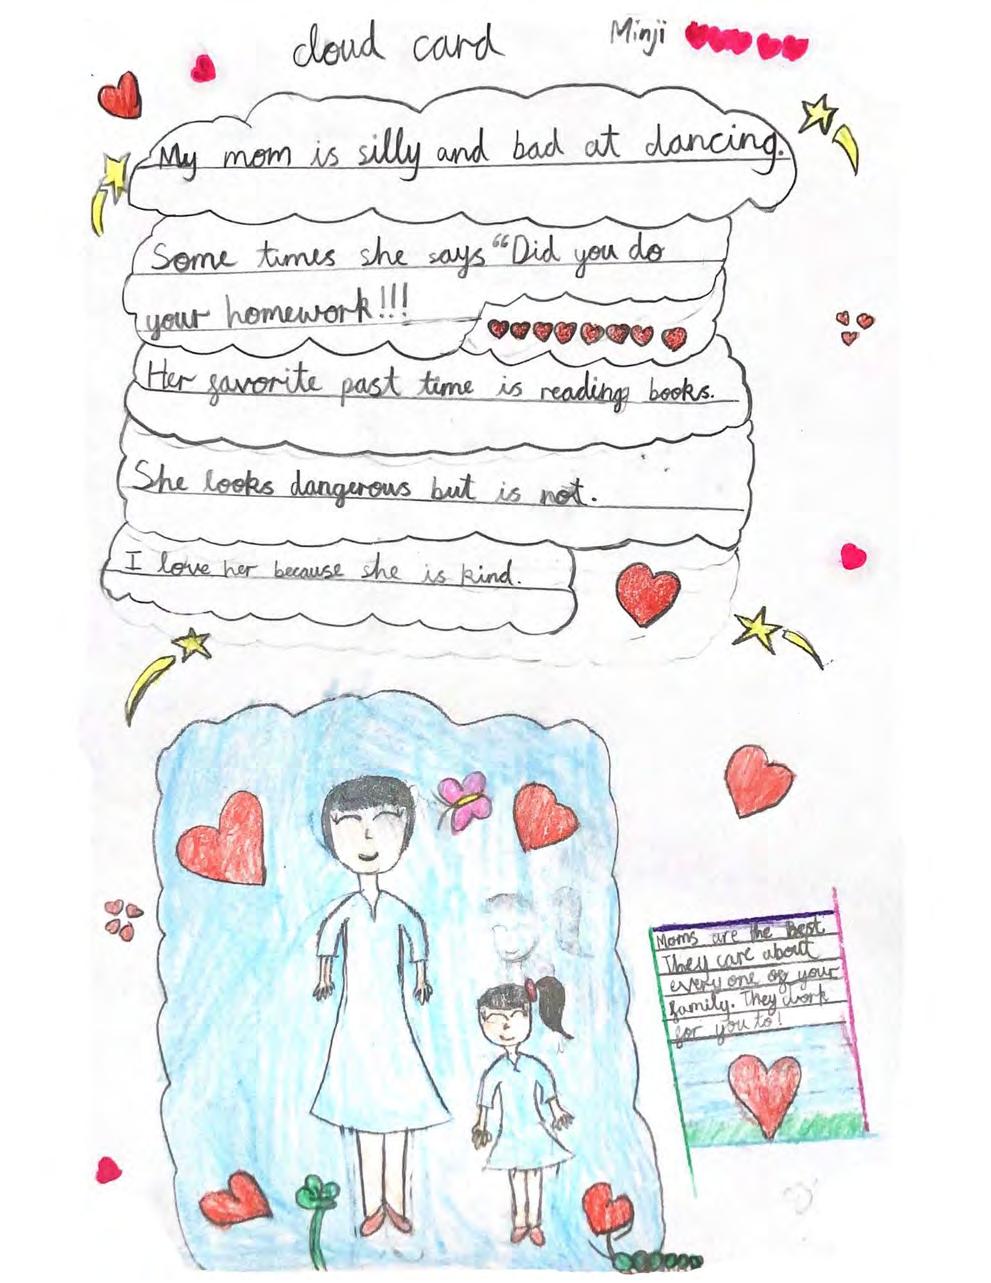 cloud card
Minji
My mom is silly and bad at dancing.
Some times she says "Did you do
your homework!!!
Her favorite past time is reading books.
She looks dangerous but is not.
I love her because she is kind.
Moms are the best
They care about
every one of your
family. They work
for you to!